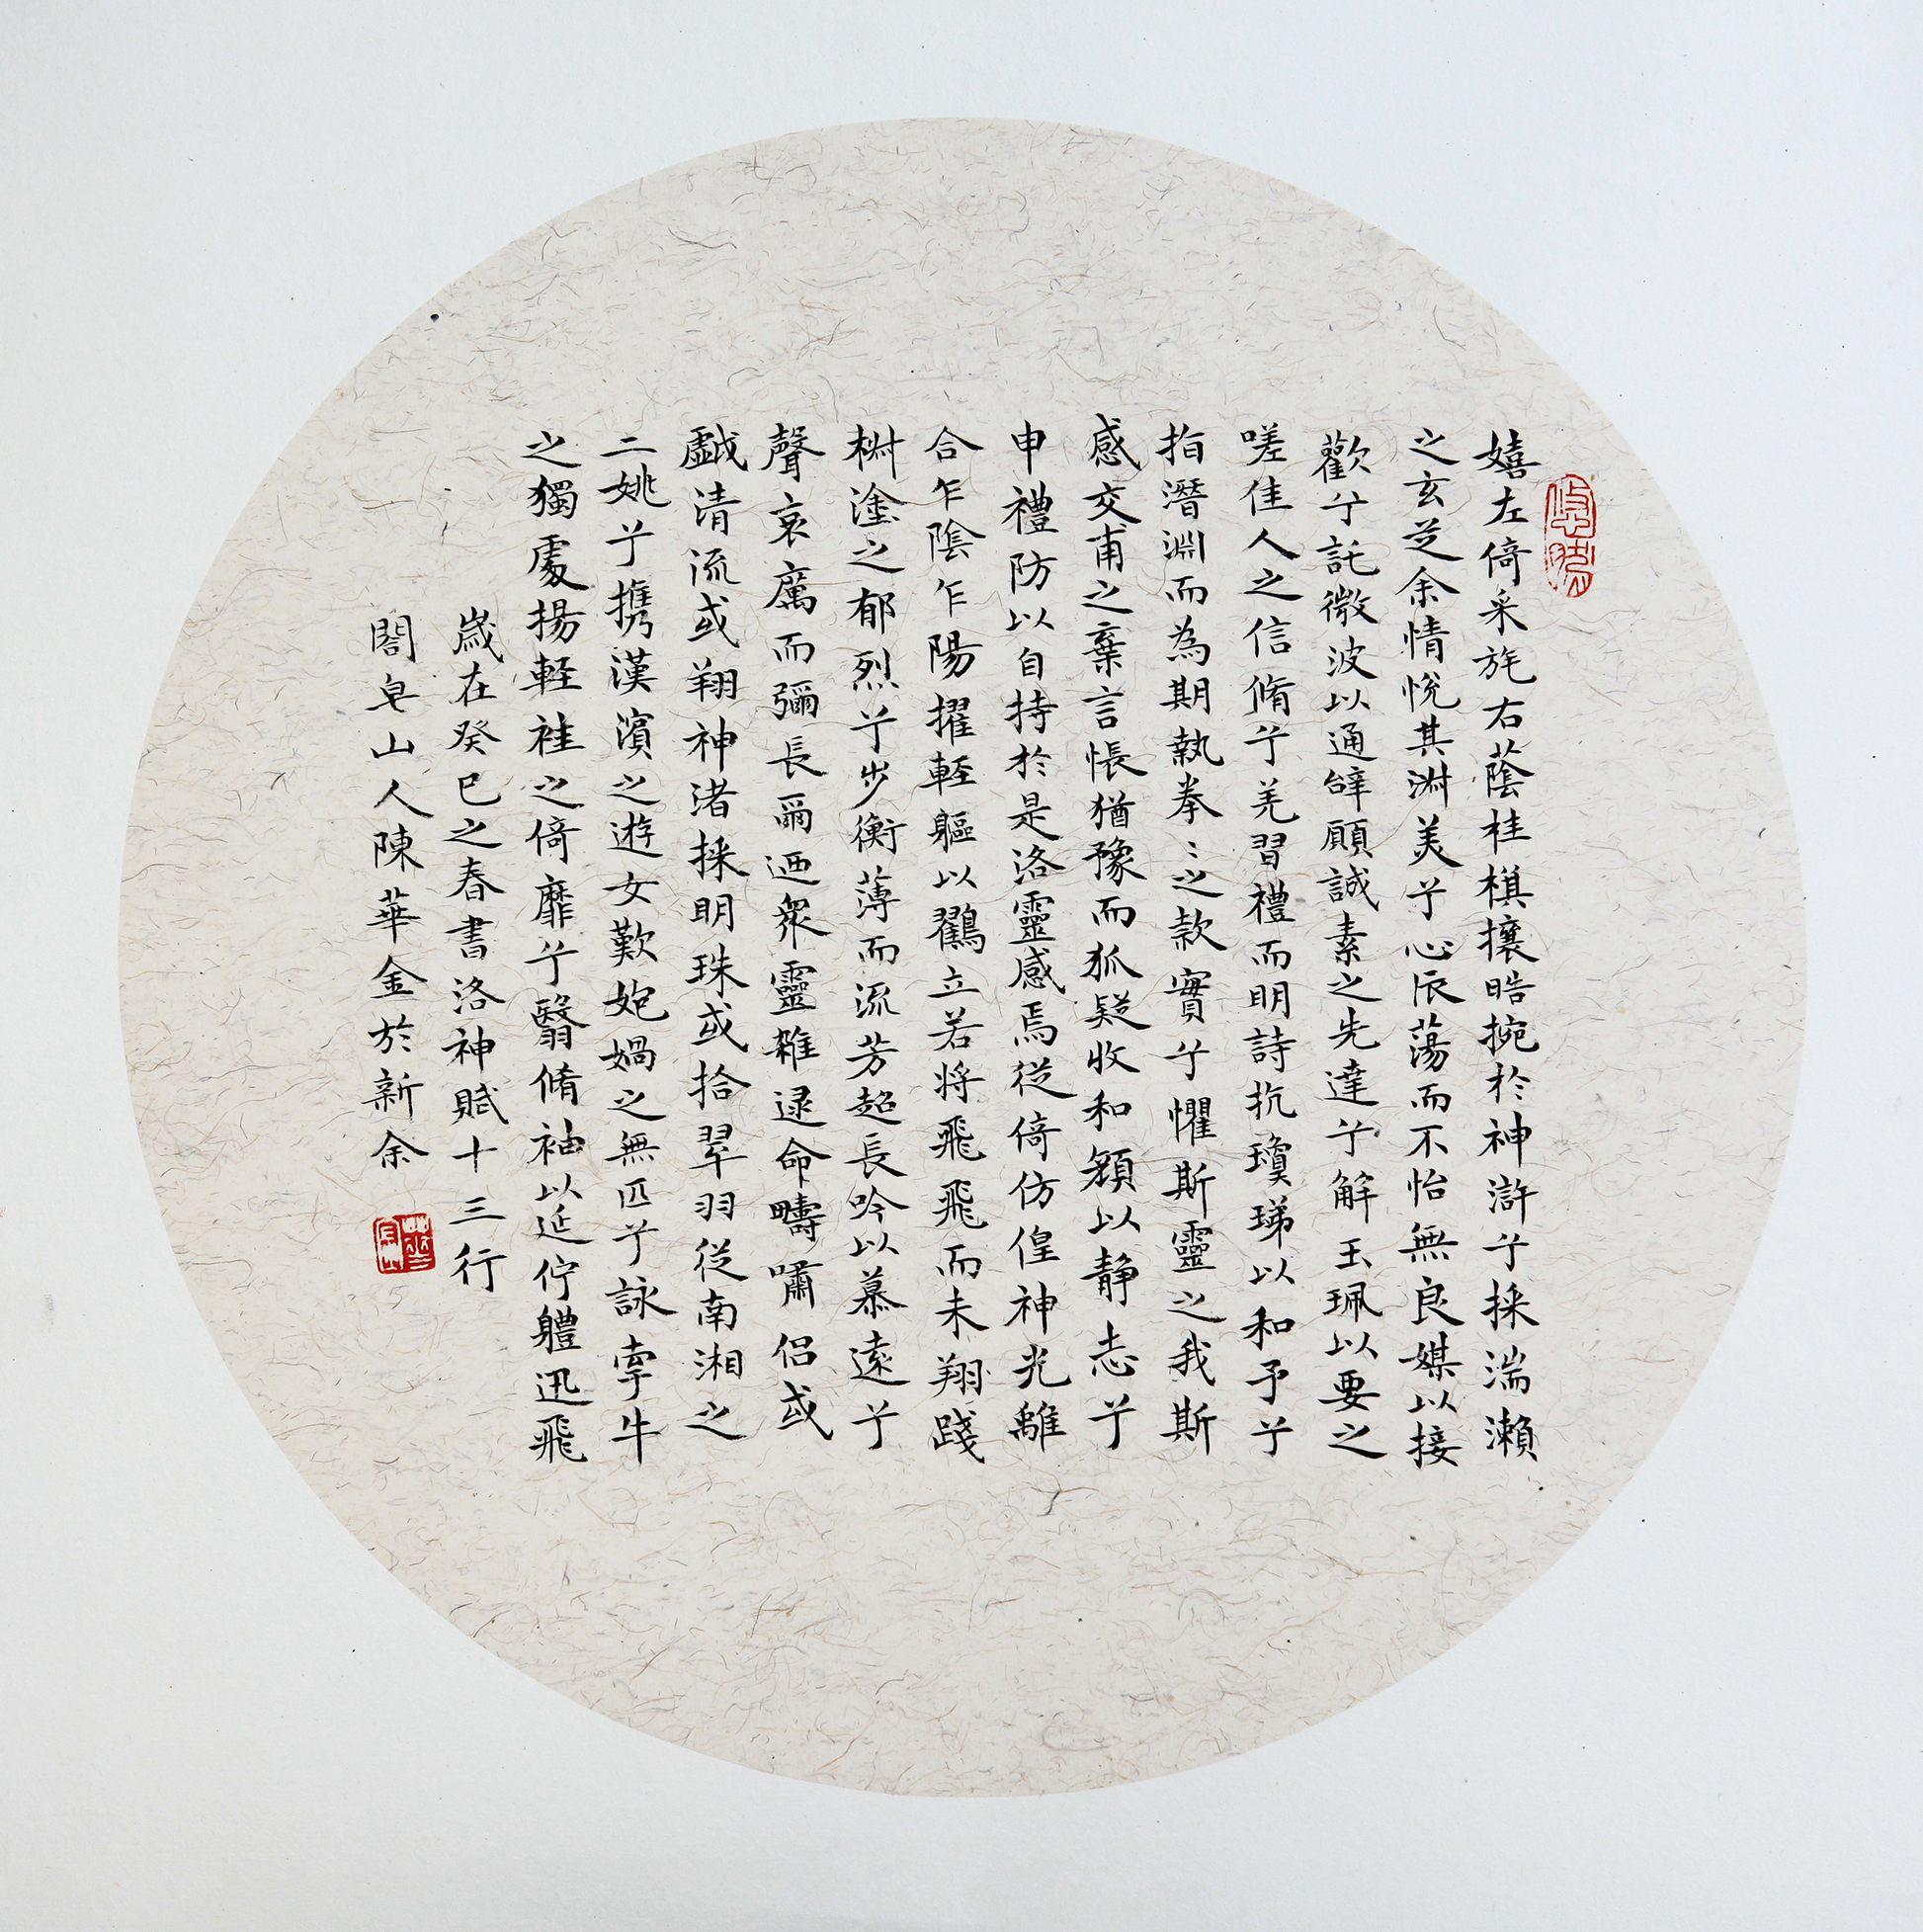 嬉左倚采旄右蔭桂棋攘晧捥於神滸兮採湍瀨
之玄芝余情悅其淋美兮心辰蕩而不怡無良媒以接
歡兮託微波以通辭願誠素之先達兮解玉珮以要之
嗟佳人之信脩兮羌習禮而明詩抗瓊珶以和予兮
指潛淵而為期執拳〻之款實兮懼斯靈之我斯
感交甫之棄言悵猶豫而狐疑收和顏以静志兮
申禮防以自持於是洛靈感焉徙倚仿偟神光離
合乍陰乍陽擢輕軀以鶴立若将飛飛而未翔踐
椒塗之郁烈兮步衡薄而流芳超長吟以慕遠兮
聲哀厲而彌長爾迺衆靈雜遝命疇嘯侣或
戯清流或翔神渚採明珠或拾翠羽從南湘之
二姚兮携漢濱之遊女歎匏媧之無匹兮詠牽牛
之獨處揚輕袿之倚靡兮翳脩袖以延佇軆迅飛
歲在癸巳之春書洛神賦十三行
閤皂山人陳華金於新余